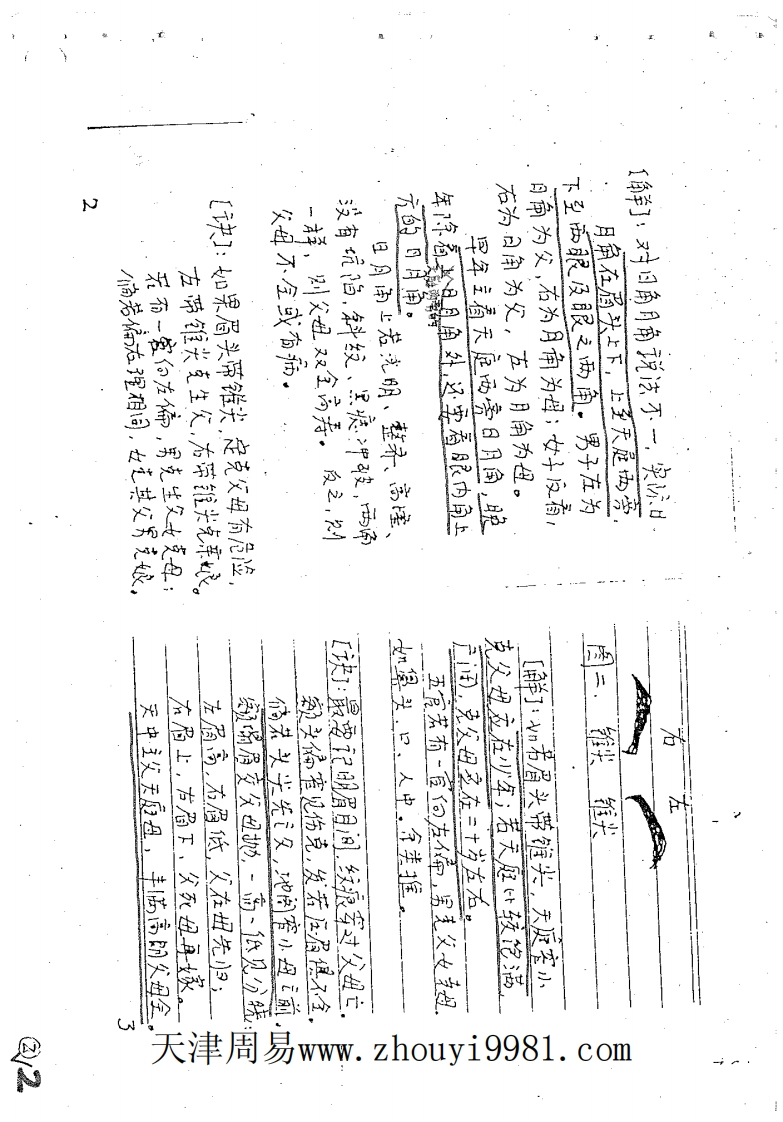 [解]：对日角月角说法不一，实际日、
月角在眉头上下，上至天庭两旁，
下至两眼及眼之两角。男子左为
日角为父，右为月角为母；女子反看，
右为日角为父，左为月角为母。
早年主看天庭两旁日月角，晚
年除看天庭两旁的日月角外，还要看眼内角上
的日月角。
日月角上若光明、整齐、高隆、
没有坑陷、斜纹、黑痣冲破，两角
一样，则父母双全而寿。反之，则
父母不全或有病。
[诀]：如果眉头带锥尖，定克父母有危险，
左带锥尖克生父，右带锥尖克亲娘。
若有一官向左偏，男克生父女克母；
偏若偏右理相同，女克其父男克娘。
2
右 左
图二、锥尖 锥尖
[解]：如若眉头带锥尖，天庭窄小
克父母应在少年；若天庭比较饱满
广阔，克父母应在二十岁左右。
五官若有一官向左偏，男克父女克母
如鼻头、口、人中。余类推。
[诀]：最要记明眉目间，纹痕穿对父母亡。
额头偏窄见伤克，发若压眉俱不全。
偏若头尖先亡父，地阁窄小母亡前，
额塌眉交父母拗，一高一低见分
左眉高，右眉低，父在母先归；
左眉上，右眉下，父死母再嫁。
天中主父天庭母，丰满高明父母全。
3
天津周易www.zhouyi9981.com
② 2